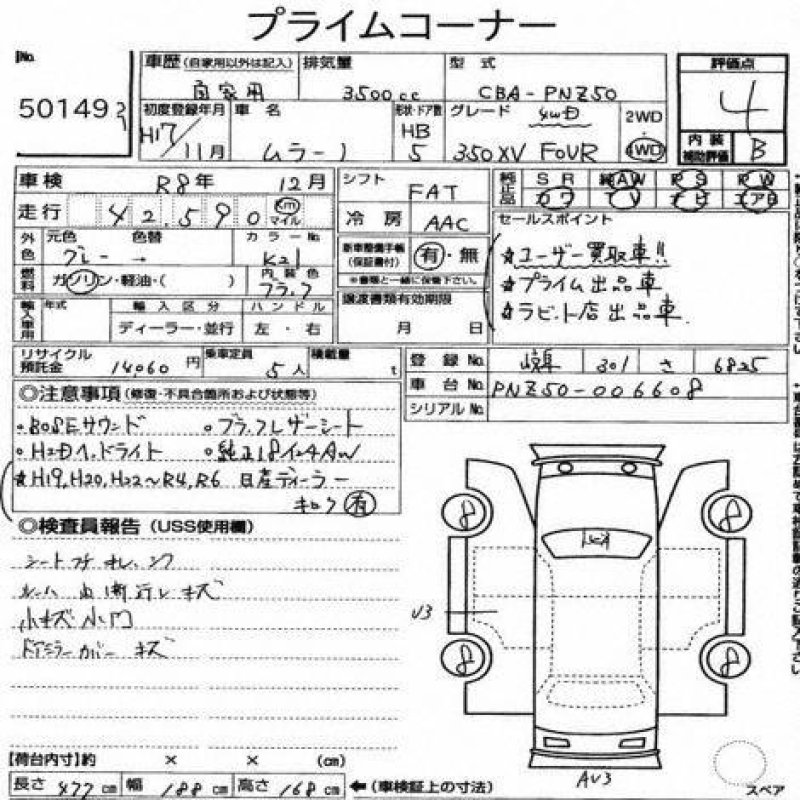 プライムコーナー
No.
50149
車歴 (自家用以外は記入) 自家用
排気量 3500cc
型式 CBA-PNZ50
評価点 4
初度登録年月 H17/11月
車名 ムラーノ
形状・ドア数 HB 5
グレード 4WD 350XV FOUR
2WD
4WD
内装補助評価 B
車検 R8年 12月
シフト FAT
純正品 SR 純AW PS PW
カワ TV ナビ エアB
走行 42,590 Km マイル
冷房 AAC
セールスポイント
外色 元色 グレー 色替 → カラーNo. K21
新車整備手帳(保証書付) 有・無
※書類と一緒に保管下さい。
★ユーザー買取車!!
燃料 ガソリン・軽油・( )
内装色 ブラック
★プライム出品車
輸入車用 年式 輸入区分 ハンドル
譲渡書類有効期限
★ラビット店出品車
ディーラー・並行 左・右
月 日
リサイクル預託金 14060円
乗車定員 5人
積載量 t
登録No. 岐阜 301 さ 6825
車台No. PNZ50-006608
シリアルNo.
◎注意事項(修復・不具合箇所および状態等)
・BOSEサウンド ・ブラックレザーシート
・HIDヘッドライト ・純正18インチAW
★H19,H20,H22~R4,R6 日産ディーラー
キロク有
◎検査員報告(USS使用欄)
キズ
小キズ小凹
ドアミラーカバーキズ
8
8
8
8
U3
AU3
スペア
【荷台内寸】約 × × (cm)
長さ 477cm 幅 188cm 高さ 168cm ←(車検証上の寸法)